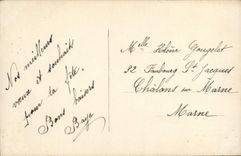 Nos meilleurs
vœux et souhaits
pour la fête
Bons baisers
Baye
Mlle Hélène Gougelet
32 Faubourg St Jacques
Châlons sur Marne
Marne